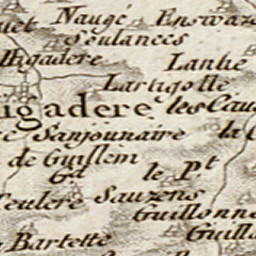 uet Naugé Enswaze
Seulances
Higadere Lanhe
Lartigolle
igadere les Cau
Sanjouinaire la C
de Guillem
Gd le Pt
Teulere Sauzens
Guillonne
Bartette Guill